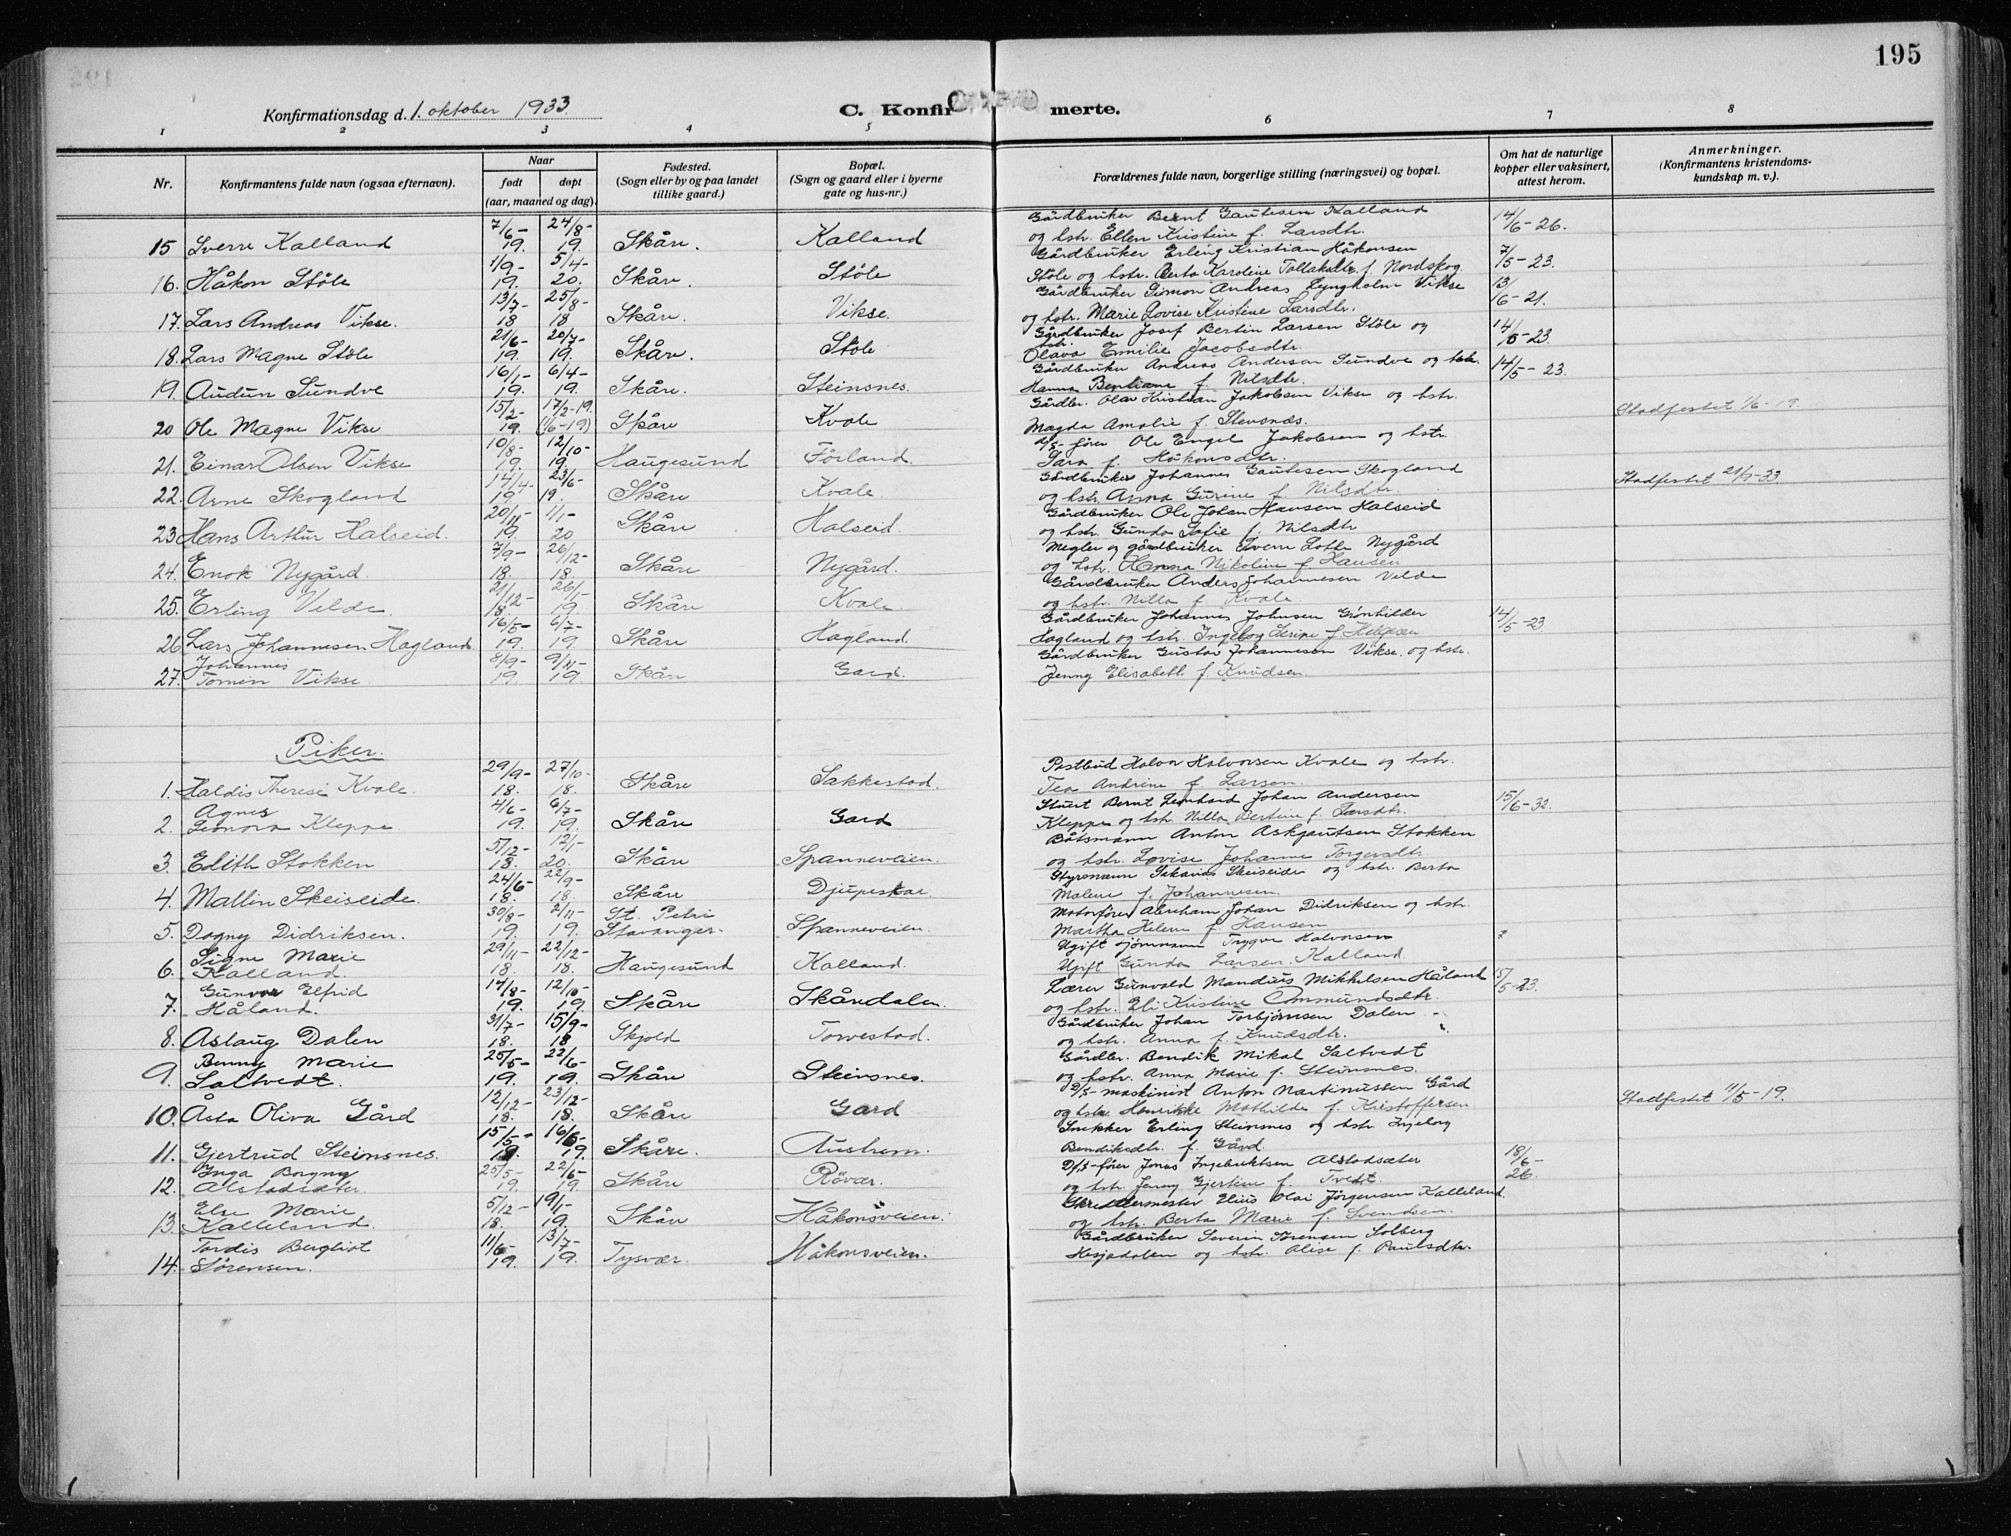 195
Konfirmationsdag d. 1. oktober 1933.
C. Konfirmerte.
1 2 3 4 5 6 7 8
Nr. Konfirmantens fulde navn (ogsaa efternavn). Naar født døpt (aar, maaned og dag). Fødested. (Sogn eller by og paa landet tillike gaard.) Bopæl. (Sogn og gaard eller i byerne gate og hus-nr.) Forældrenes fulde navn, borgerlige stilling (næringsvei) og bopæl. Om hat de naturlige kopper eller vaksinert, attest herom. Anmerkninger. (Konfirmantens kristendoms-kundskap m. v.).
15 Sverre Kalland 7/6-19. 24/8-19. Skåre. Kalland Gårdbruker Bernt Gautesen Kalland 14/6-26.
og hstr. Ellen Kristine f. Larsdtr.
16. Håkon Stöle 1/9-19. 5/4-20. Skåre. Stöle Gårdbruker Erling Kristian Håkonsen 7/5-23.
Stöle og hstr. Berta Karoline Tollaksdtr. f. Nordskog
17. Lars Andreas Vikse. 13/7-18 25/8-18 Skåre. Vikse. Gårdbruker Simon Andreas Lyngholm Vikse 13/6-21.
og hstr. Marie Lovise Kristine Larsdtr.
18. Lars Magne Stöle 21/6-19. 20/7-19. Skåre. Stöle Gårdbruker Josef Bertin Larsen Stöle og 14/5-23.
hstr. Olava Emilie Jacobsdtr.
19. Audun Sundve 16/1-19. 6/4-19. Skåre. Steinsnes. Gårdbruker Andreas Andersen Sundve og hstr. 14/5-23.
Hanna Bentiane f. Nilsdtr.
20 Ole Magne Vikse 15/2-19. 17/2-19. (1/6-19) Skåre Kvale Gårdbr. Olav Kristian Jakobsen Vikse og hstr. Stadfestet 1/6-19.
Magda Amalie f. Stensnæs.
21. Einar Olsen Vikse 10/8-19. 12/10-19. Haugesund Föiland. d/s-fører Ole Engel Jakobsen og hstr.
Sara f. Håkonsdtr.
22. Arne Skogland 14/4-19 23/6-19. Skåre Kvale. Gårdbruker Johannes Gautesen Skogland Stadfestet 21/9-33
og hstr. Anna Gurine f. Nilsdtr.
23 Hans Arthur Halseid. 20/11-19. 1/1-20 Skåre Halseid. Gårdbruker Ole Johan Hansen Halseid
og hstr. Gunda Sofie f. Nilsdtr
24. Enok Nygård. 7/9-18. 26/12-18. Skåre Nygård. Megler og gårdbruker Sverre Lotte Nygård
og hstr. Hanna Nikoline f. Hansen
25. Erling Velde. 21/12-18. 26/1-19. Skåre Kvale. Gårdbruker Anders Johannesen Velde
og hstr. Nilla f. Kvale.
26 Lars Johannesen Hagland. 16/5-19. 6/7-19. Skåre Hagland. Gårdbruker Johannes Johnsen Gönhilder 14/5-23
Hagland og hstr. Ingeborg Serine f. Helgesen
27. Johannes Tomin Vikse. 8/9-19. 9/11-19. Skåre Gard. Gårdbruker Gustav Johannesen Vikse. og hstr.
Jenny Elisabeth f. Knudsen.
Piker.
1. Haldis Therese Kvale. 29/9-18. 27/10-18. Skåre Sakkestad. Postbud Halvor Halvorsen Kvale og hstr.
Tea Andrine f. Larsen
2. Agnes Leonora Kleppe 4/6-19. 6/7-19. Skåre Gard Stuert Bernt Leonhard Johan Andersen 15/6-32.
Kleppe og hstr. Nilla Bertine f. Larsdtr.
3. Edith Stokken 5/12-18. 12/1-20. Skåre Spanneveien. Båtsmann Anton Askgautsen Stokken
og hstr. Lovise Johanne Torgersdtr.
4. Mallin Skeiseide. 24/6-18. 22/9-18. Skåre Djupeskar Styrsmann Sakarias Skeiseide og hstr. Berta
Malene f. Johannesen.
5. Dagny Didriksen. 30/8-19. 2/11-19. St. Petri Stavanger. Spanneveien Motorfører Abraham Johan Didriksen og hstr.
Martha Helene f. Hansen
6. Signe Marie Kalland. 29/11-18. 22/12-18. Haugesund Kalland. Ugift sjømann Trygve Halvorsen
Ugift Gunda Larsen Kalland.
7. Gunvor Elfrid Håland. 14/8-19. 12/10-19. Skåre Skåredalen. Lærer Gunvald Mandius Mikkelsen Håland 15/5-23.
og hstr. Eli Kristine Ommundsdtr.
8. Aslaug Dalen 31/7-18. 15/9-18 Skjold Torvestad. Gårdbruker Johan Torbjørnsen Dalen
og hstr. Anna f. Knudsdtr.
9. Benny Marie Saltvedt. 25/5-19. 22/6-19. Skåre Steinsnes. Gårdbr. Bendik Mikal Saltvedt
og hstr. Anna Marie f. Steinsnes.
10. Åsta Oliva Gård 12/12-18. 23/12-18. Skåre Gard D/S-maskinist Anton Martinussen Gård Stadfestet 11/5-19.
og hstr. Henrikke Mathilde f. Kristoffersen
11. Gjertrud Steinsnes. 15/5-19. 16/6-19. Skåre. Austrem. Snekker Erling Steinsnes og hstr. Ingeborg
Bendiksdtr. f. Gård.
12. Inga Borgny Alstadsæter. 25/5-19. 22/6-19. Skåre Rövær. D/S-fører Jonas Ingebriktsen Alstadsæter 18/6-26.
og hstr. Jenny Gjertine f. Tvedt.
13. Else Marie Kalleland. 5/12-18. 19/1-19. Skåre Håkonsveien. Skreddermester Elius Olai Jörgensen Kalleland
og hstr. Berta Marie f. Svendsen.
14. Tordis Bergliot Sørensen. 11/6-19. 13/7-19. Tysvær. Håkonsveien. Gårdbruker Severin Sørensen Solberg
Hesjadalen og hstr. Alise f. Paulsdtr.